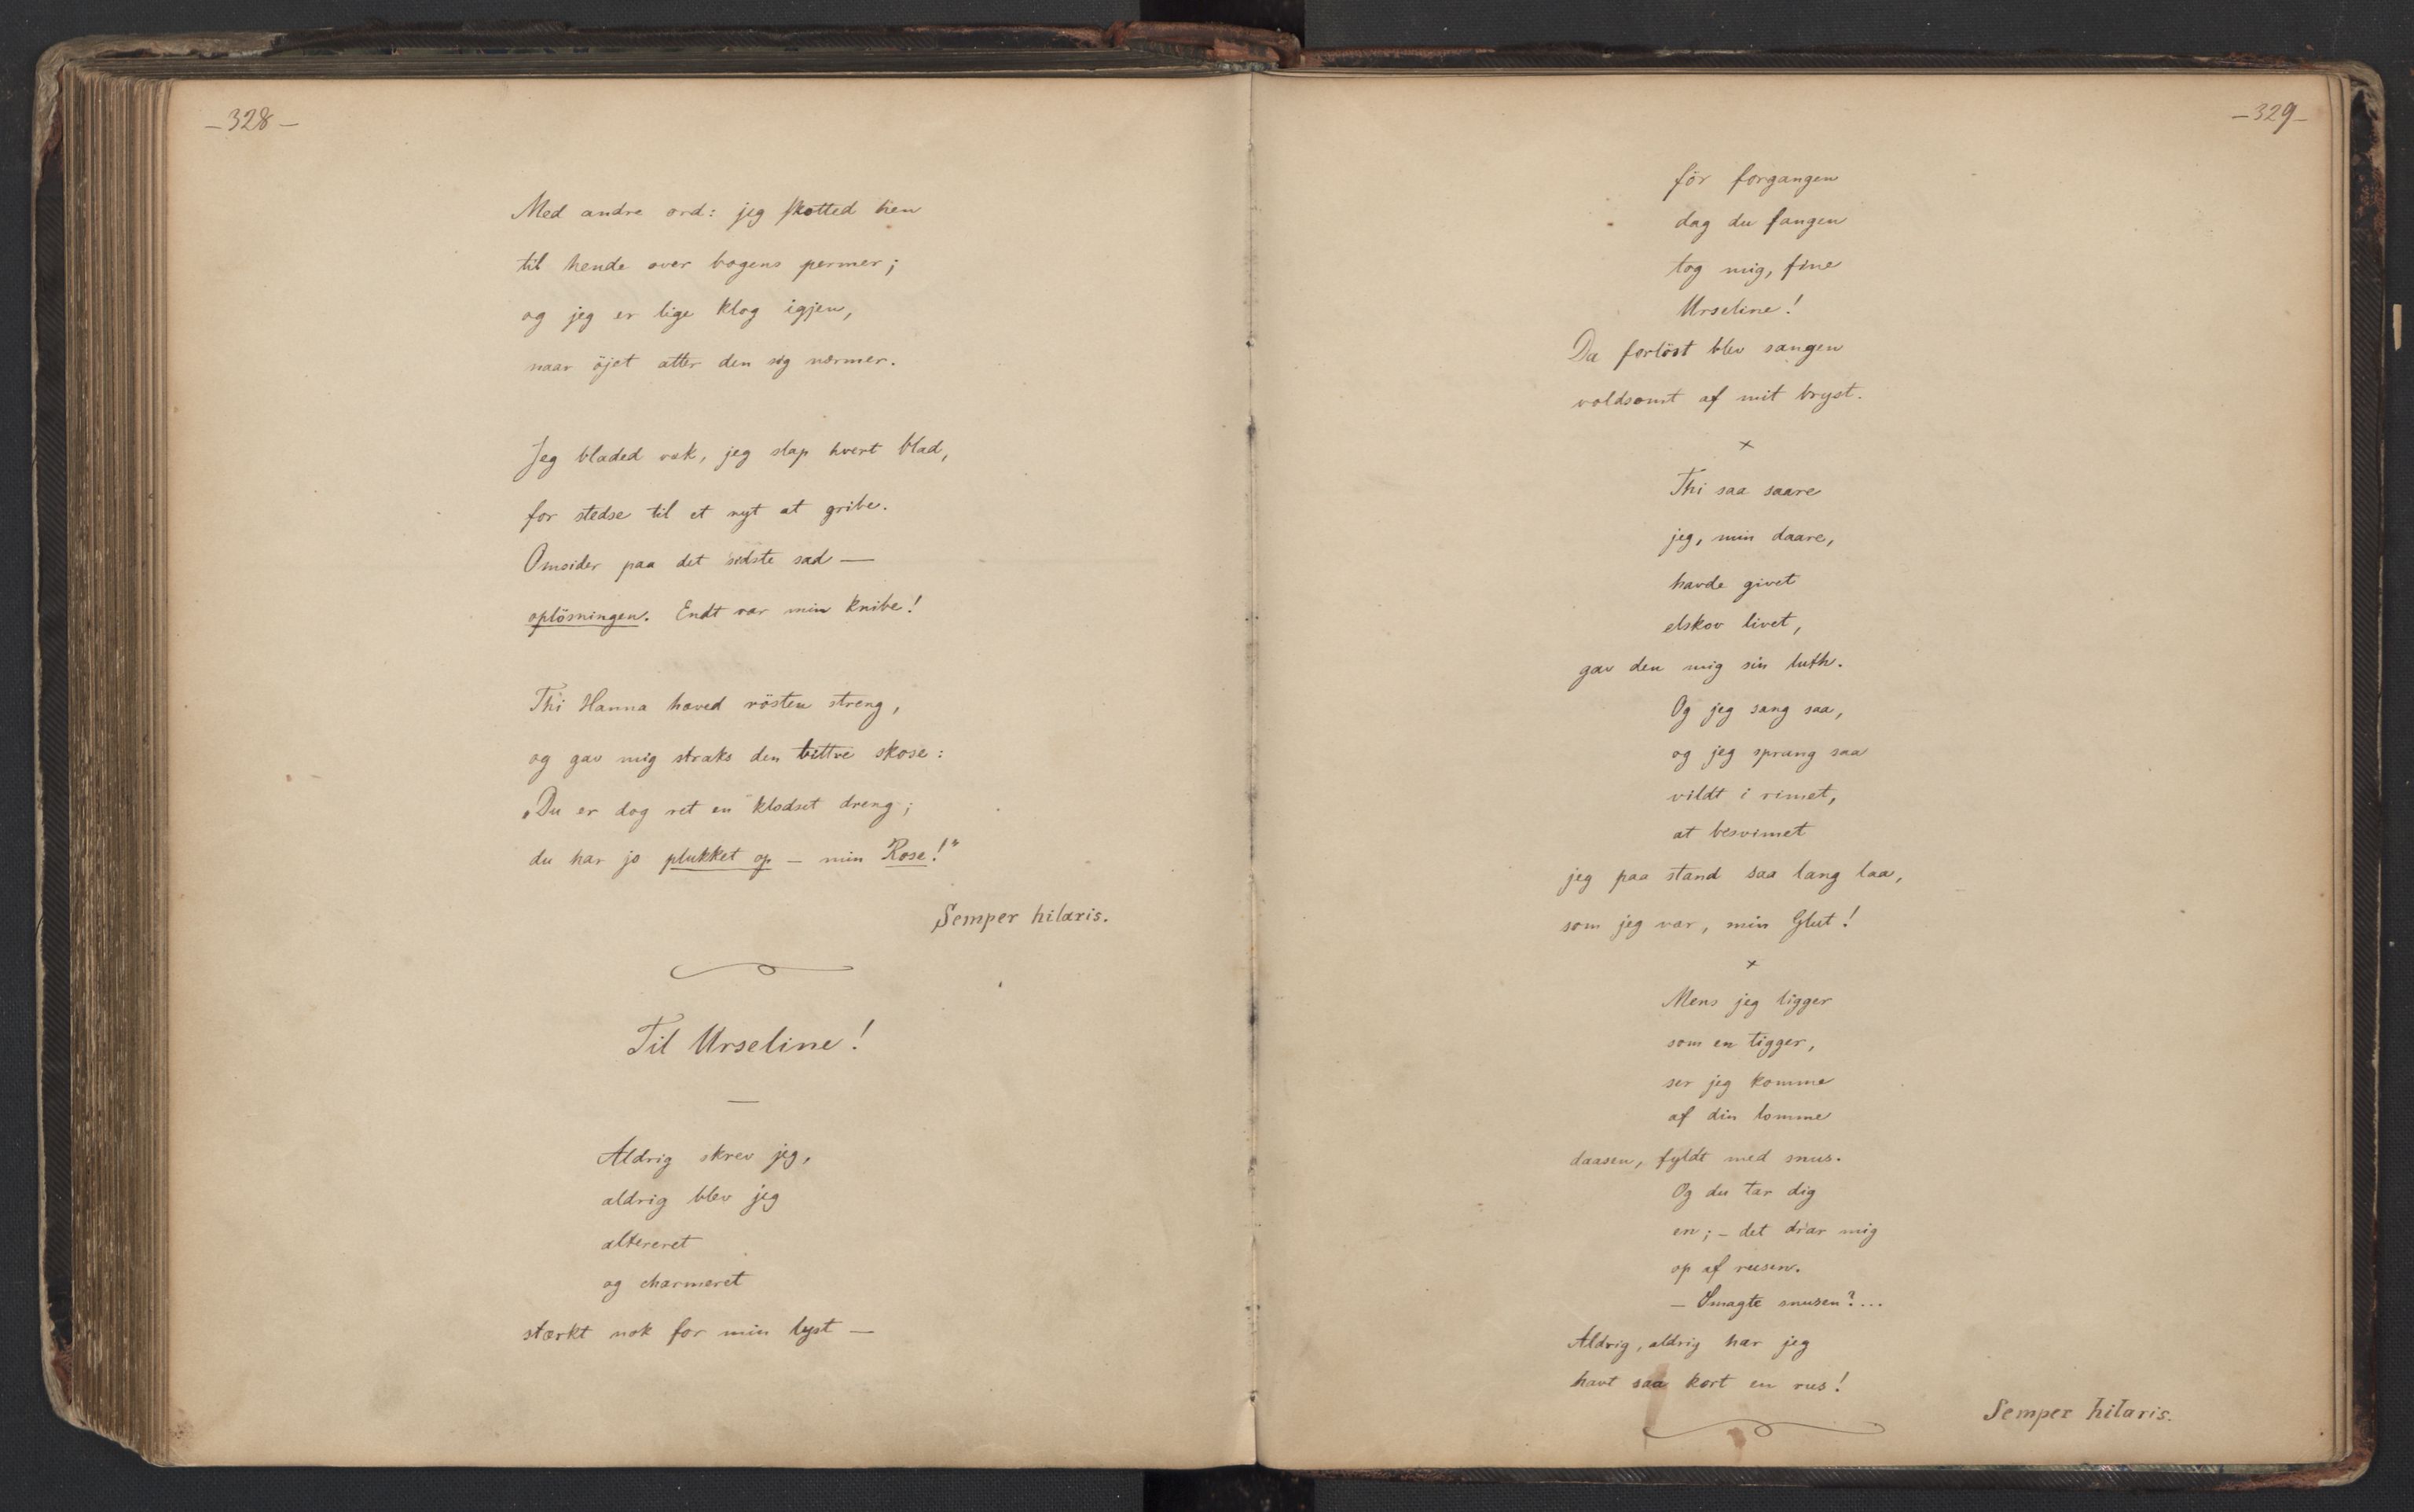 -328-
Med andre ord: jeg skotted hen
til hende over bogens permer;
og jeg er lige klog igjen,
naar öjet atter den sig nærmer.
Jeg bladed væk, jeg slap hvert blad,
for stedse til et nyt at gribe.
Omsider paa det sidste sad —
oplösningen. Endt var min knibe!
Thi Hanna hæved rösten streng,
og gav mig straks den bittre skose:
„Du er dog ret en klodset dreng;
du har jo plukket op — min Rose!"
Semper hilaris.
Til Urseline!
—
Aldrig skrev jeg,
aldrig blev jeg
altereret
og charmeret
stærkt nok for min lyst —
-329-
för forgangen
dag du fangen
tog mig, fine
Urseline!
Da forlöst blev sangen
voldsomt af mit bryst.
×
Thi saa saare
jeg, min daare,
havde givet
elskov livet,
gav den mig sin luth.
Og jeg sang saa,
og jeg sprang saa
vildt i rimet,
at besvimet
jeg paa stand saa lang laa,
som jeg var, min Glut!
×
Mens jeg ligger
som en tigger,
ser jeg komme
af din lomme
daasen, fyldt med snus.
Og du tar dig
en; - det drar mig
op af rusen.
— Smagte snusen?...
Aldrig, aldrig har jeg
havt saa kort en rus!
Semper hilaris.